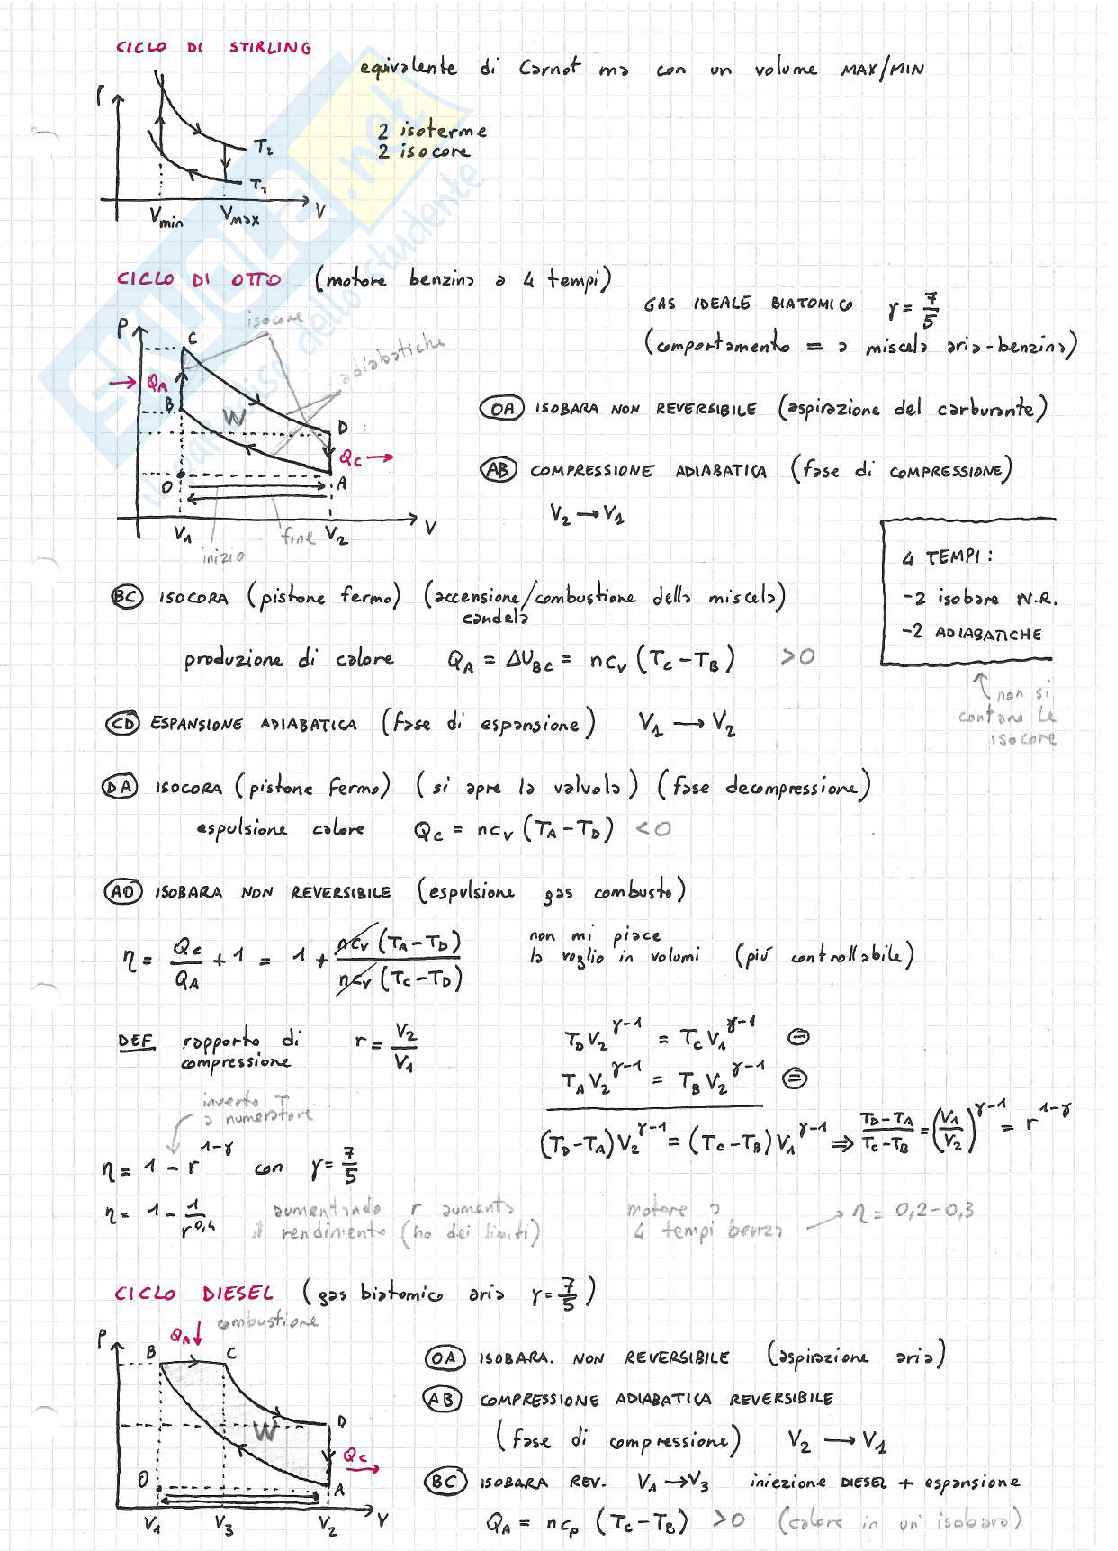 CICLO DI STIRLING
equivalente di Carnot ma con un volume MAX/MIN
P
2 isoterme
2 isocore
T2
T1
Vmin Vmax V
CICLO DI OTTO (motore benzina a 4 tempi)
GAS IDEALE BIATOMICO γ = 7/5
(comportamento = a miscela aria-benzina)
P C isocore
adiabatiche
QA
B W D
QC
O A
V1 V2 V
inizio fine
OA ISOBARA NON REVERSIBILE (aspirazione del carburante)
AB COMPRESSIONE ADIABATICA (fase di COMPRESSIONE)
V2 → V1
4 TEMPI:
-2 isobare N.R.
-2 ADIABATICHE
non si
contano le
isocore
BC ISOCORA (pistone fermo) (accensione/combustione della miscela)
candela
produzione di calore QA = ΔUBC = ncv (TC-TB) >0
CD ESPANSIONE ADIABATICA (fase di espansione) V1 → V2
DA ISOCORA (pistone fermo) (si apre la valvola) (fase decompressione)
espulsione calore QC = ncv (TA-TD) <0
AO ISOBARA NON REVERSIBILE (espulsione gas combusto)
η = QC/QA + 1 = 1 + ncv (TA-TD)/ncv (TC-TD)
non mi piace
la voglio in volumi (più controllabile)
DEF rapporto di
compressione
r = V2/V1
TD V2^γ-1 = TC V1^γ-1 ⊖
TA V2^γ-1 = TB V2^γ-1 ⊜
(TD-TA)V2^γ-1 = (TC-TB)V1^γ-1 ⇒ TD-TA/TC-TB = (V1/V2)^γ-1 = r^1-γ
inverto T
a numeratore
η = 1 - r^1-γ con γ = 7/5
η = 1 - 1/r^0,4
aumentando r aumenta
il rendimento (ha dei limiti)
motore a
4 tempi benza → η = 0,2-0,3
CICLO DIESEL (gas biatomico aria γ = 7/5)
QA combustione
P B C
W D
QC
O A
V1 V3 V2 V
OA ISOBARA. NON REVERSIBILE (aspirazione aria)
AB COMPRESSIONE ADIABATICA REVERSIBILE
(fase di compressione) V2 → V1
BC ISOBARA REV. V1 → V3 iniezione DIESEL + espansione
QA = ncp (TC-TB) >0 (calore in un'isobara)